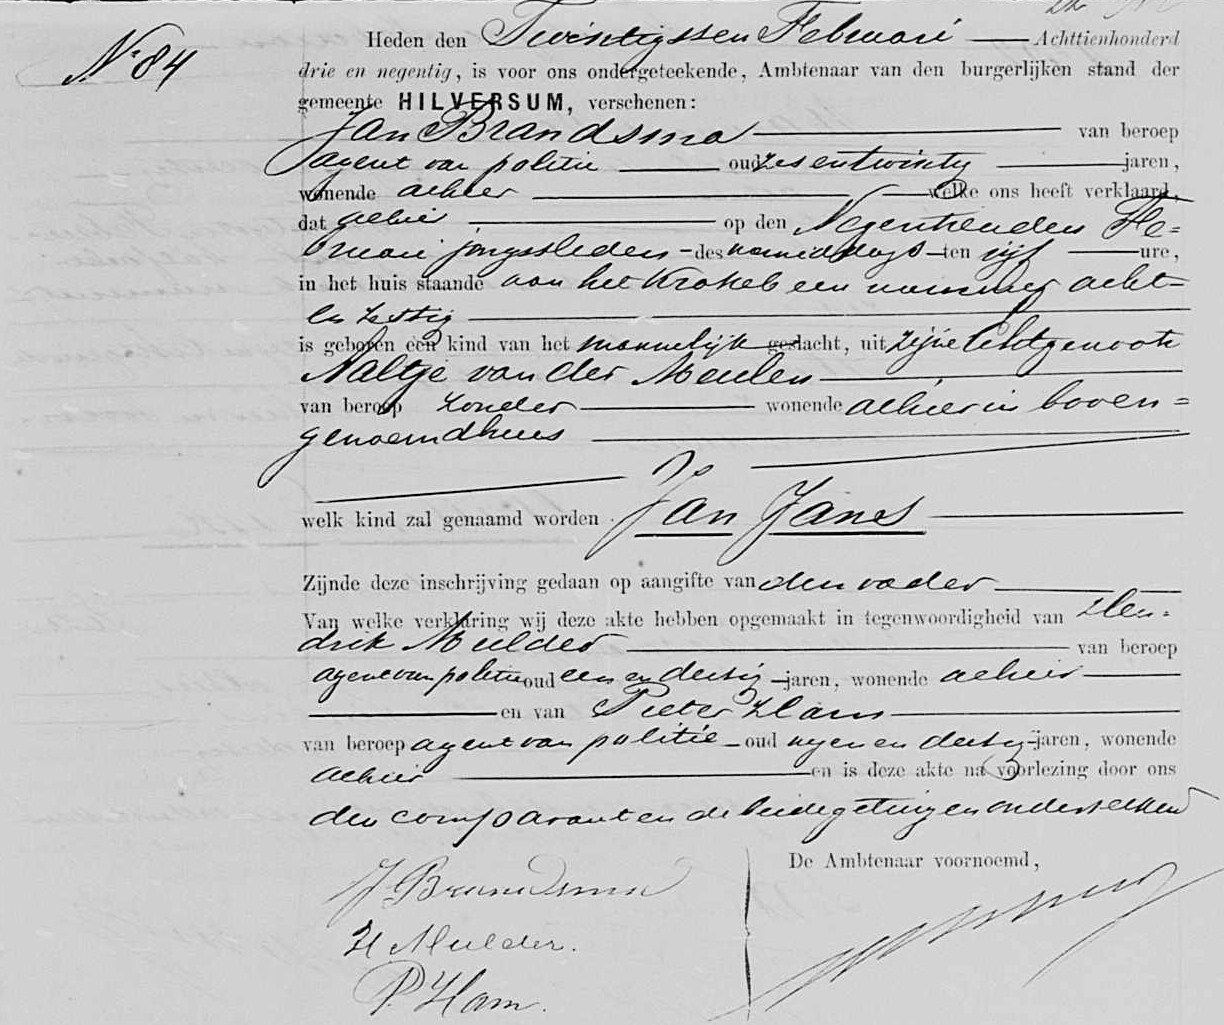 No 84
Heden den Twintigsten Februari Achttienhonderd
drie en negentig, is voor ons ondergeteekende, Ambtenaar van den burgerlijken stand der
gemeente HILVERSUM, verschenen:
Jan Brandsma van beroep
agent van politie oud zes en twintig jaren,
wonende alhier welke ons heeft verklaard,
dat alhier op den Negentienden Fe=
bruari jongstleden des namiddags ten vijf ure,
in het huis staande aan het Krokeb een nummer acht=
en zestig
is geboren een kind van het mannelijk geslacht, uit zijne Echtgenoote
Aaltje van der Meulen
van beroep zonder wonende alhier in boven=
genoemd huis
welk kind zal genaamd worden Jan Janes
Zijnde deze inschrijving gedaan op aangifte van den vader
Van welke verklaring wij deze akte hebben opgemaakt in tegenwoordigheid van Hen=
drik Mulder van beroep
agent van politie oud een en dertig jaren, wonende alhier
en van Pieter Ham
van beroep agent van politie oud negen en dertig jaren, wonende
alhier en is deze akte na voorlezing door ons
den comparant en de beide getuigen onderteekend
De Ambtenaar voornoemd,
J. Brandsma
H Mulder.
P. Ham.